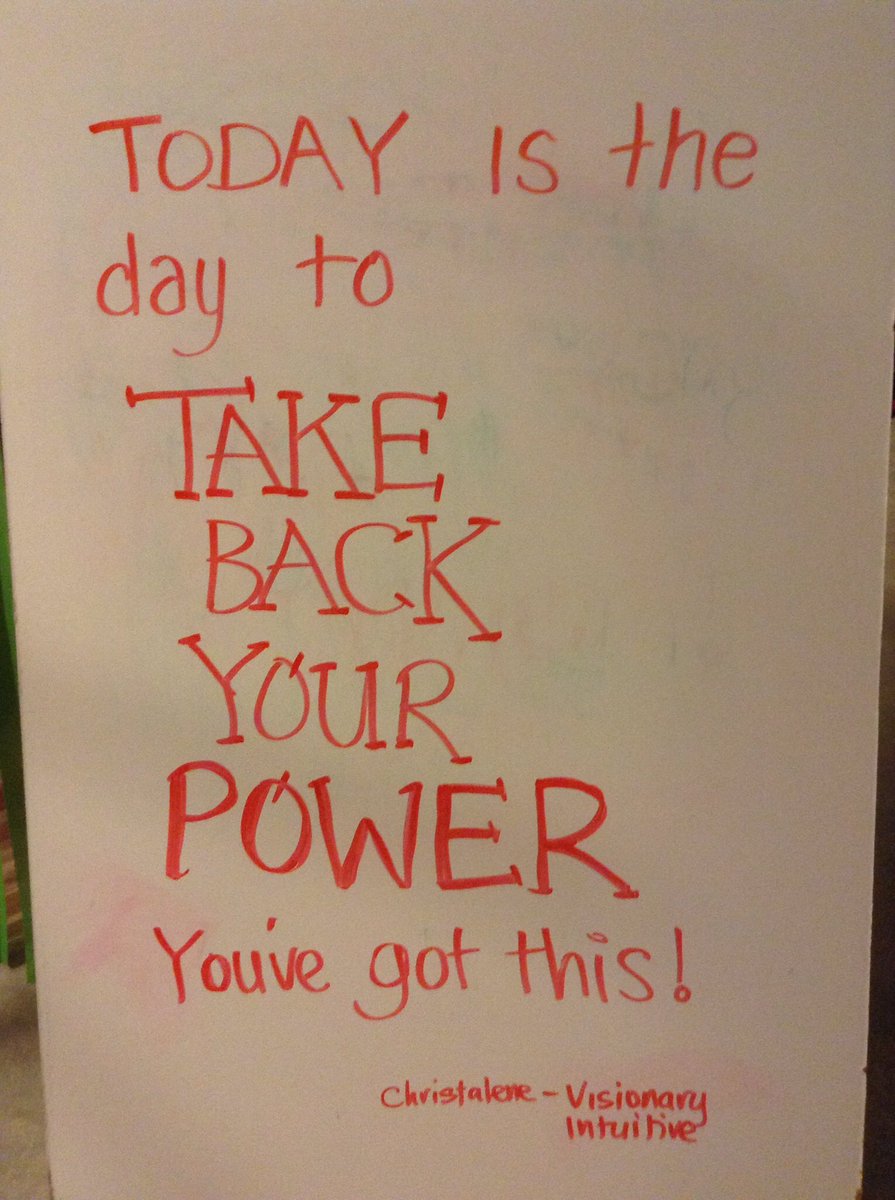 TODAY is the
day to
TAKE
BACK
YOUR
POWER
You've got this!
Christalene - Visionary
Intuitive